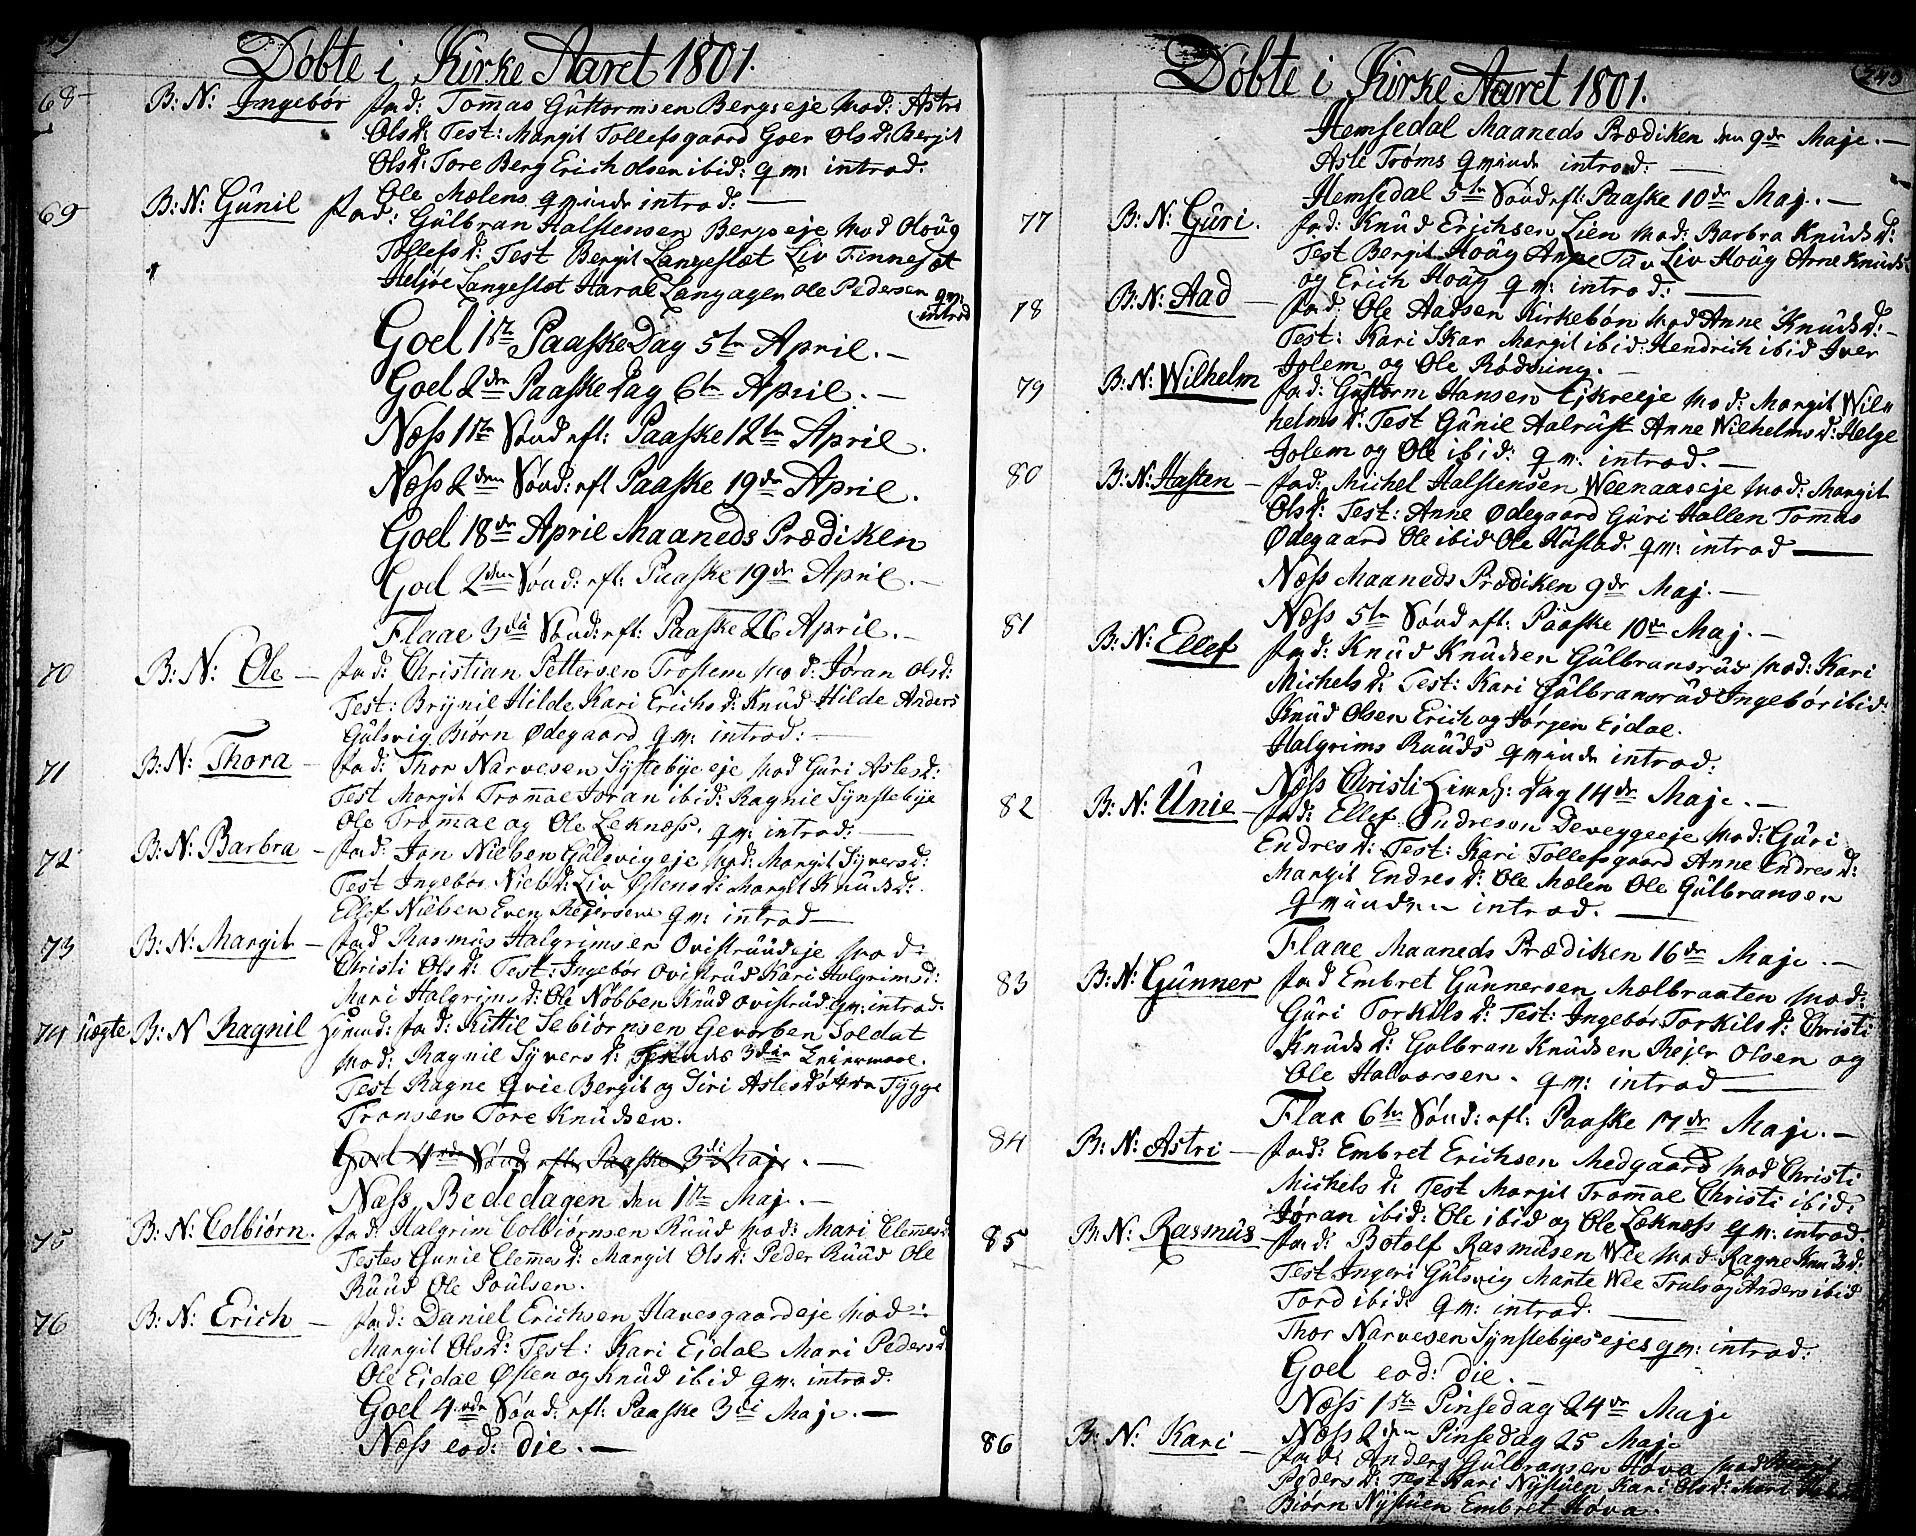 Døbte i Kirke Aaret 1801.
68 B: N: Ingebør fad: Tom̄as Guttormsen Bergseje Mod: Astri
Olsd: Test: Margit Tollefsgaard Goer Olsd: Bergit
Olsd: Tore Berg Erich Olsen ibid: qm: introd:
Ole Mælens qvinde introd:
69 B: N: Gunil fad: Gulbran Halstensen Bergseje Mod Oloug
Tollefsd: Test Bergit Langeslet Liv Finneset
Heljøe Langeslet Haral Langagen Ole Pedersen qm:
introd
Goel 1ste Paaske Dag 5te April. —
Goel 2den Paaske Dag 6te April. —
Næss 1ste Sønd eft: Paaske 12te April.
Næss 2den Sønd: eft Paaske 19de April.
Goel 18de April Maaneds Prædiken
Goel 2den Sønd: eft: Paaske 19de April. —
Flaae 3die Sønd: eft: Paaske 26 April. —
70 B: N: Ole — fad: Christian Pettersen Trostem Mod: Jøran Olsd:
Test: Brynil Hilde Kari Erichsd: Knud Hilde Anders
Gulsvig Biørn Ødegaard qm: introd: —
71 B: N: Thora — fad: Thor Narvesen Systebye eje Mod Guri Aslesd:
Test Margit Trom̄ae Joran ibid: Ragnil Synstebye
Ole Trom̄ae og Ole Leknæss. qm: introd: —
72 B: N: Barbra — fad: Jon Nielsen Gulsvigeje Mod: Margit Syversd:
Test Ingebør Nielsd: Liv Østensd: Margit Knudsd:
Ellef Nielsen Even Rejersen qm: introd —
73 B: N: Margit — fad Rasmus Halgrimsen Ovistruudeje Mod:
Christi Olsd: Test: Ingebør Ovistrud Kari Halgrimsd:
Mari Halgrimsd: Ole Nobben Knud Ovistrud qm: introd.
74 uægte B: N Ragnil fad: Kittil Sebiørnsen Gevorben Soldat
Mod: Ragnil Syversd: 3die Leiermaal.
Test Ragne Qvie Bergit og Siri Aslesdøtter Tygge
Tronsen Tore Knudsen.
Goel 4de Sønd eft Paaske 3di Maj. —
Næss Bededagen den 1ste Maj. —
75 B: N: Colbiørn. fad: Halgrim Colbiørnsen Ruud Mod: Mari Clem̄esd:
Testes Gunie Clem̄esd: Margit Olsd: Peder Ruud Ole
Ruud Ole Poulsen.
76 B: N: Erich — fad: Daniel Erichsen Havesgaardeje Mod:
Margit Olsd: Test: Kari Ejdal Mari Pedersd
Ole Eidae Østen og Knud ibid qm: introd.
Goel 4de Sønd: eft: Paaske 3di Maj. —
Næss eod: die. —
Døbte i Kirke Aaret 1801.
245
Hemsedal Maaneds Prædiken den 9de Maje. —
Asle Trøms qvinde introd: —
Hemsedal 5te Sønd eft: Paaske 10de Maj. —
77 B: N: Guri. fad: Knud Erichsen Lien Mod: Barbra Knudsd:
Test Bergit Houg Anne Tuv Liv Houg Arne Knuds
og Erich Houg qm: introd: —
78 B: N: Aad — fad: Ole Aadsen Kirkebøn Mod Anne Knudsd: —
Test: Kari Skar Margit ibid: Hendrich ibid Iver
Jolem og Ole Rødning. —
79 B: N: Wilhelm fad: Guttorm Hansen Ejkreeje Mod: Margit Wil=
helmsd: Test Gunil Aalrust Anne Wilhelmsd: Helge
Jolem og Ole ibid: qm: introd. —
80 B: N: Hasten — fad: Michel Halstensen Weenaaseje Mod: Margit
Olsd: Test: Anne Ødegaard Guri Hallen Tom̄as
Ødegaard Ole ibid Ole Hustad. qm: introd —
Næss Maaneds Prædiken 9de Maj. —
Næss 5te Sønd eft: Paaske 10de Maj. —
81 B: N: Ellef fad: Knud Knudsen Gulbransrud Mod: Kari
Michelsd: Test: Kari Gulbransrud Ingebør ibid:
Knud Olsen Erich og Jørgen Eidae.
Halgrims Ruuds qvinde introd:
Næss Christi Himelf: Dag 14de Maje. —
82 B: N: Unie — fad: Ellef Endreson Deveggeeje Mod: Guri
Endresd: Test: Kari Tollefsgaard Anne Endresd:
Margit Endresd: Ole Mælen Ole Gulbransen
Qvinden introd. —
Flaae Maaneds Prædiken 16de Maje —
83 B: N: Gunner fad Embret Gunnersen Mælbraaten Mod:
Guri Torkilsd: Test: Ingebør Torkilsd: Christi
Knudsd: Golbran Knudsen Rejer Olsen og
Ole Halvorsen. qm: introd —
Flaa 6te Sønd: eft: Paaske 17de Maje. —
84 B: N: Astri — fad: Embret Erichsen Medgaard Mod Christi
Michelsd: Test Margit Trom̄ae Christi ibid:
Jøran ibid: Ole ibid og Ole Leknæss qm: introd.
85 B: N: Rasmus — fad: Botolf Rasmusen Wee Mod: Ragne Knudsd:
Test Ingeri Gulsvig Marte Wee Truls og Anders ibid
Tord ibid: qm: introd: —
Thor Narvesen Synstebyes ejes qm: introd:
Goel eod: die. —
Næss 1ste Pinsedag 24de Maj
Næss 2den Pinsedag 25 Maj
86 B: N: Kari — fad: Anders Gulbransen Hova Mod
Pedersd: Test Kari Nystuen Kari Olsd: Marit
Biørn Nystuen Embret Hova.